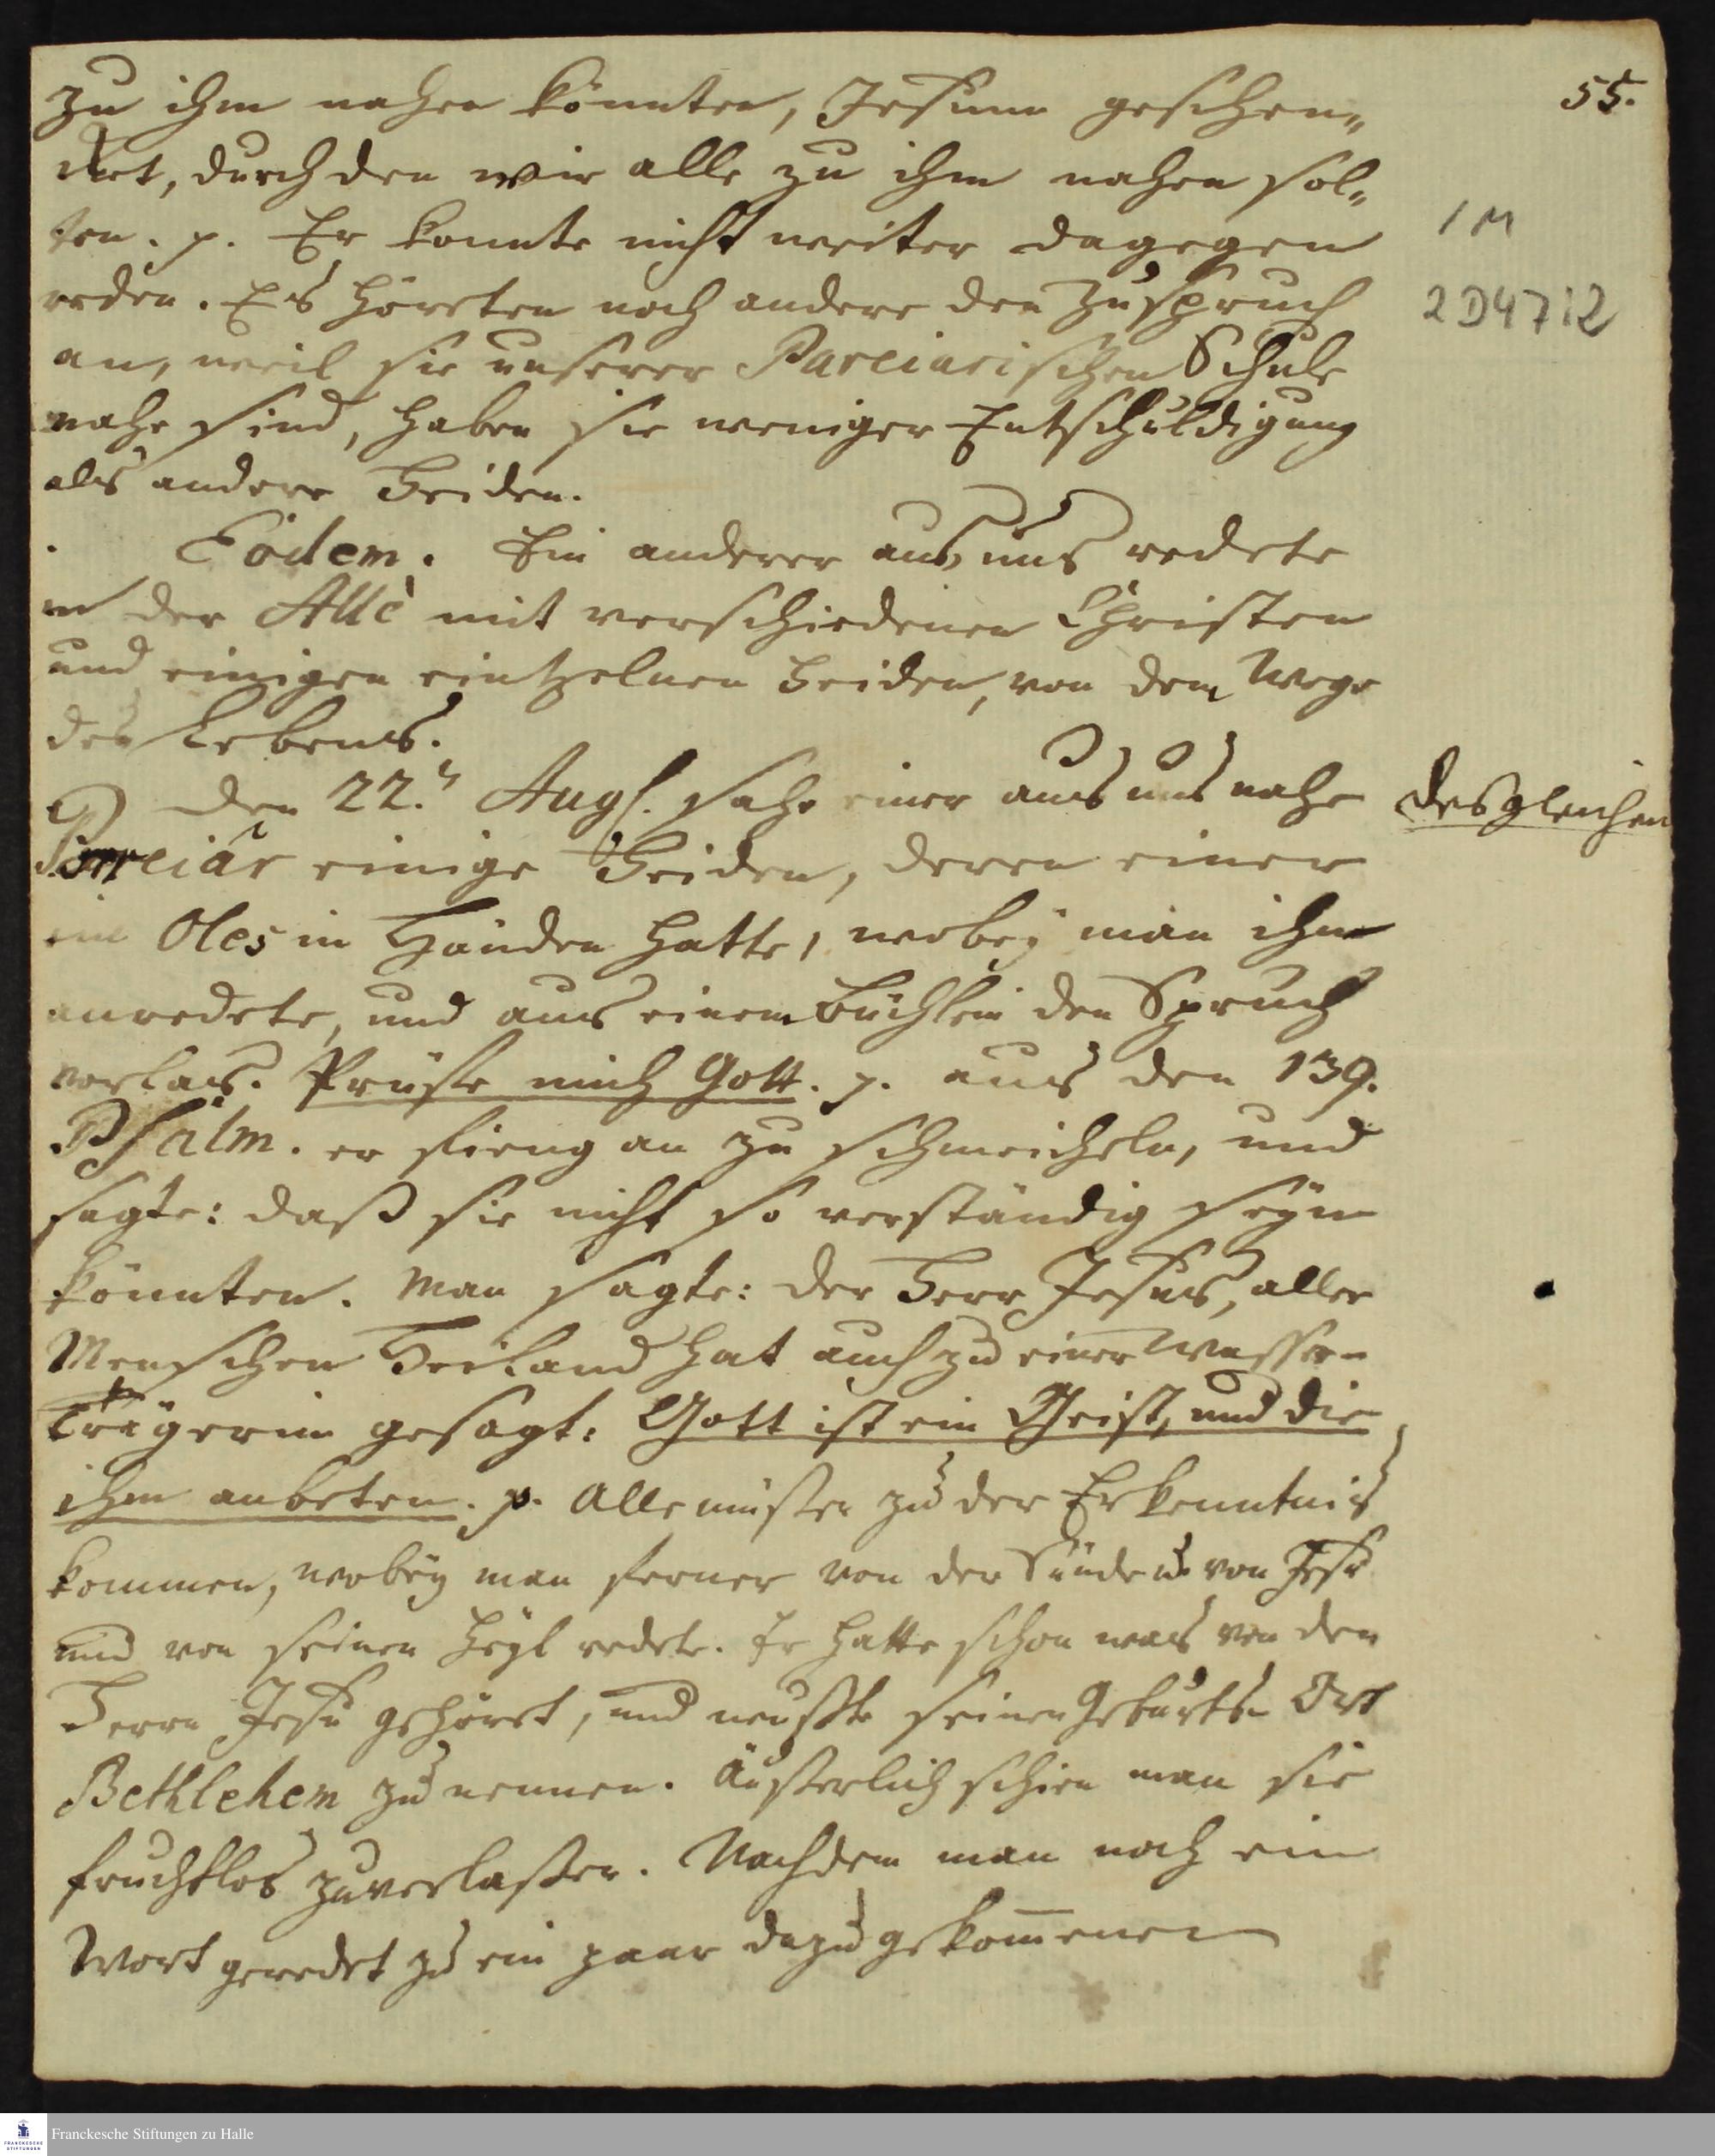 55.
zu ihm nahen könnten, Jesum geschen„
cket, durch den wir alle zu ihm nahen sol„
ten. p. Er konnte nicht weiter dagegen
reden. Es höreten noch andere den Zuspruch
an, weil sie unserer Pareiarischen Schule
nahe sind, haben sie weniger Entschuldigung
als andere Heiden.
Eodem. Ein anderer aus uns redete
in der Allè mit verschiedenen Christen
und einigen eintzelnen Heiden, von dem Wege
des Lebens.
Den 22.ⁿ Aug. sahe einer aus uns nahe
Poreiar einige Heiden, deren einer
ein Oles in Händen hatte, wobey man ihn
anredete, und aus einem Büchlein den Spruch
vorlas. Prüfe mich Gott. p. aus den 139.
Psalm. er fieng an zu schmeicheln, und
sagte: daß sie nicht so verständig seyn
könnten. Man sagte: der Herr Jesus, aller
Menschen Heiland hat auch zu einer Wasser-
Trägerin gesagt: Gott ist ein Geist, und die
ihn anbeten. p. Alle müßen zu der Erkenntnis
kommen, wobey man ferner von der Sünde u. von Jesu
und von seinen Heyl redete. Er hatte schon was von den
Herrn Jesu gehöret, und wuste seinen Geburts- Ort
Bethlehem zu nennen. Äußerlich schien man sie
fruchtlos zuverlaßen. Nachdem man noch ein
Wort geredet zu ein paar dazu gekom̄enen
1 M
2 D 47 : 2
Desgleichen
Franckesche Stiftungen zu Halle
FRANCKESCHE
STIFTUNGEN